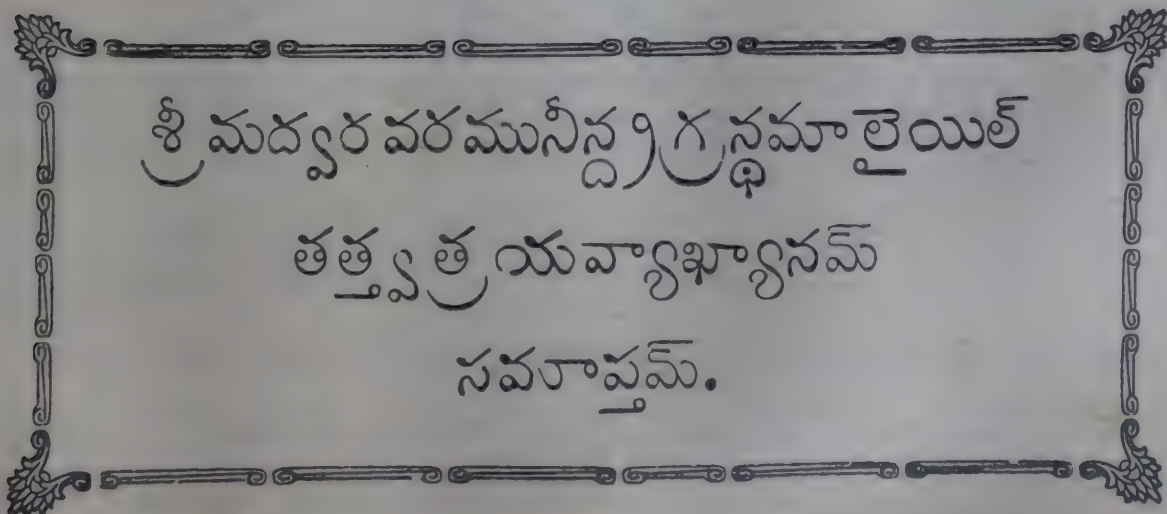 శ్రీమద్వరవరమునీన్ద్రగ్రన్థమాలైయిల్
తత్త్వత్రయవ్యాఖ్యానమ్
సమాప్తమ్.